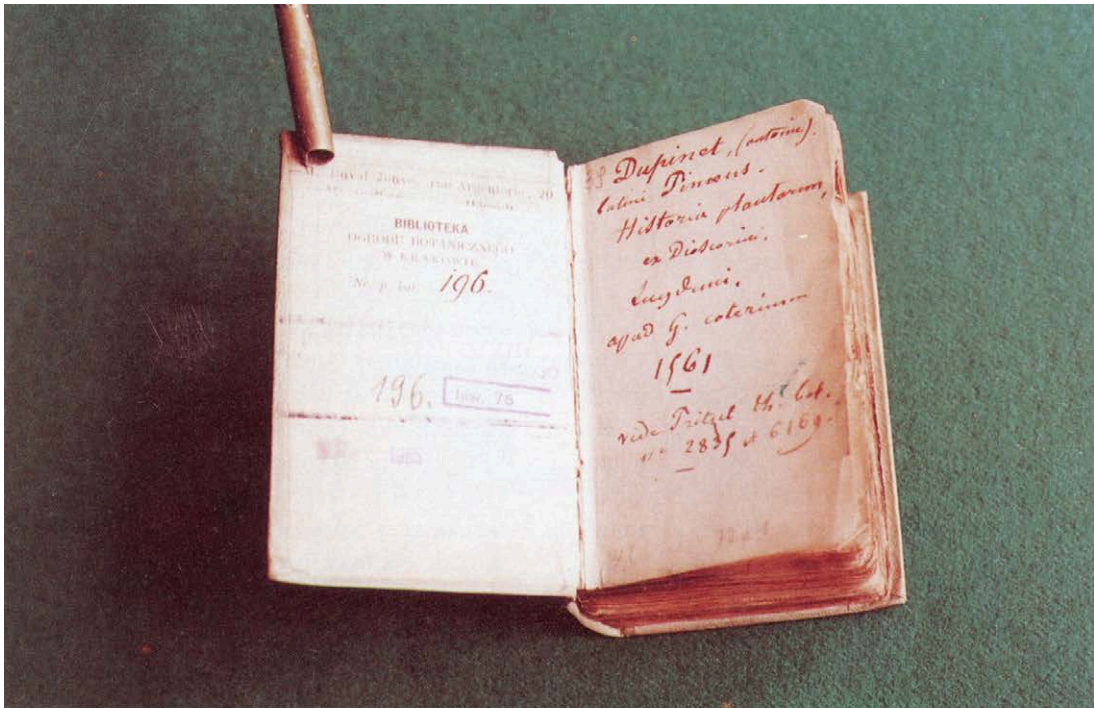 M. Duval Jouve, rue Argenterie, 20
BIBLIOTEKA
OGRODU BOTANICZNEGO
W KRAKOWIE
Nr. p. tot. 196.
196.
Inw. 76
Dupinet, (antoine).
latini Pinæus.
Historia plantarum,
ex Dioscoride.
Lugduni,
apud G. coterium
1561
vide Pritzel th. bot.
n° 2835 et 6169.